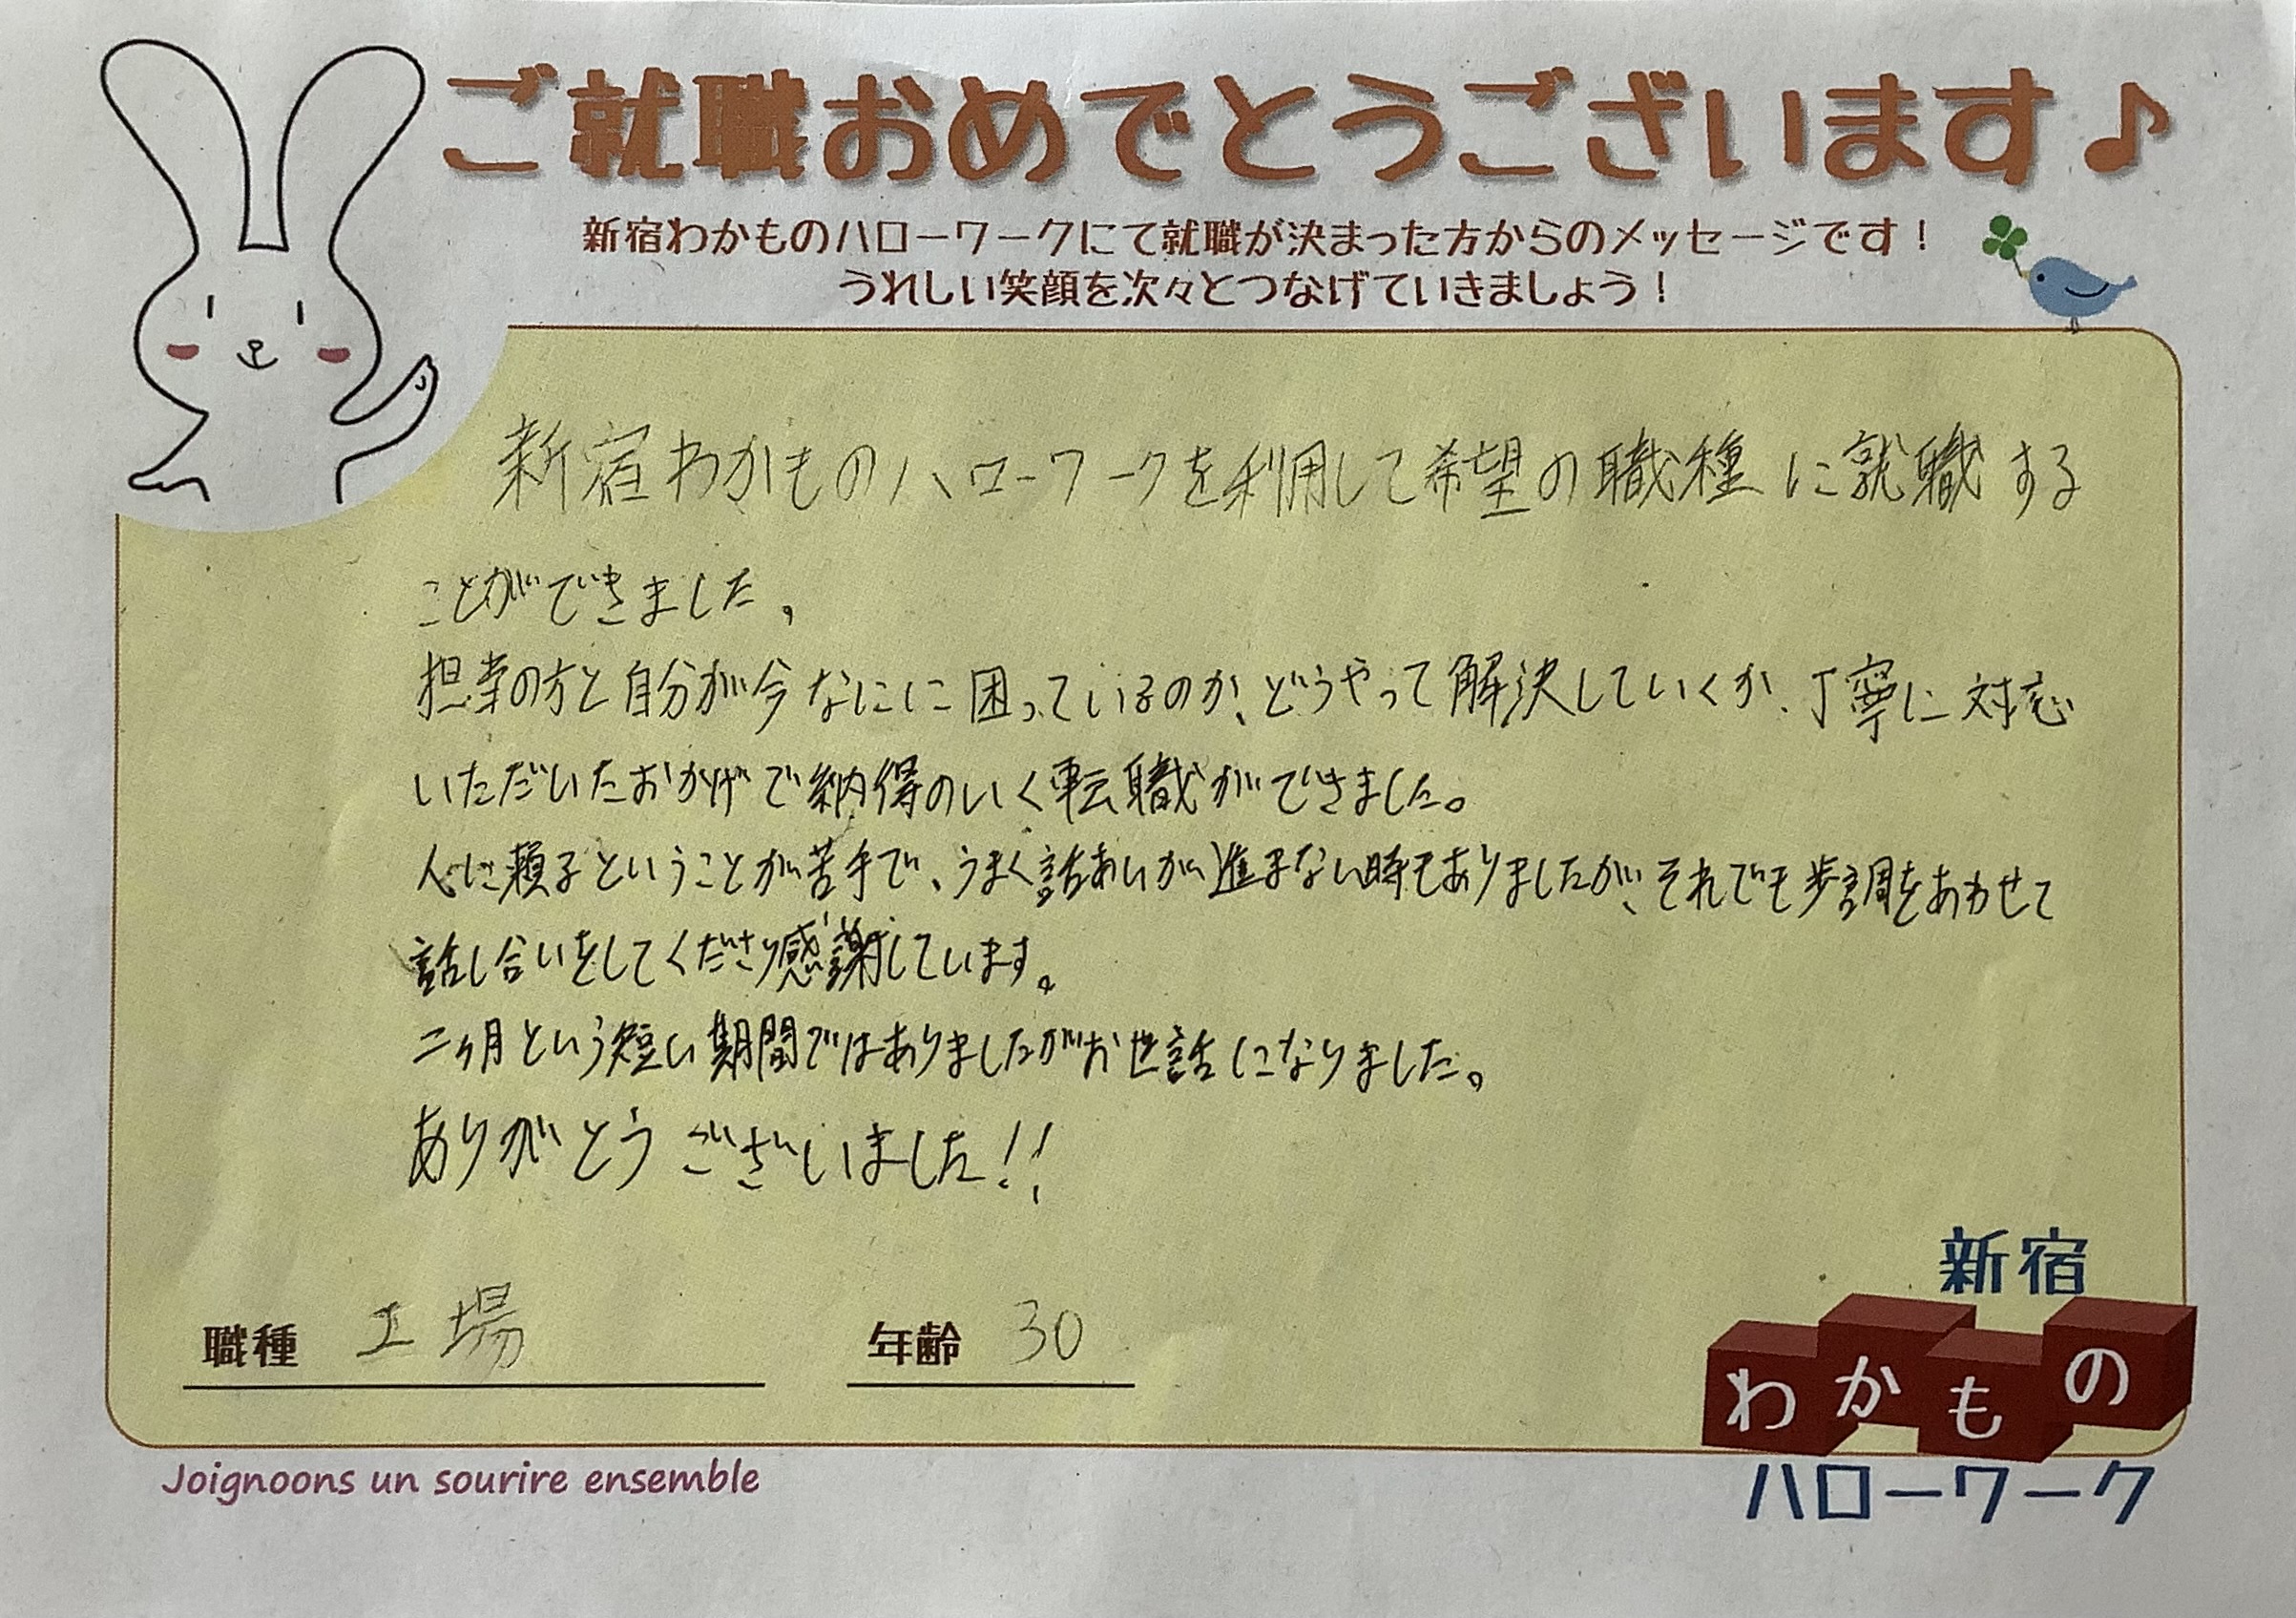 ご就職おめでとうございます♪
新宿わかものハローワークにて就職が決まった方からのメッセージです！
うれしい笑顔を次々とつなげていきましょう！
新宿わかものハローワークを利用して希望の職種に就職する
ことができました。
担当の方と自分が今なにに困っているのか、どうやって解決していくか、丁寧に対応
いただいたおかげで納得のいく転職ができました。
人に頼るということが苦手で、うまく話あいが進まない時もありましたが、それでも歩調をあわせて
話し合いをしてくださり感謝しています。
二ヶ月という短い期間ではありましたがお世話になりました。
ありがとうございました!!
職種 工場 年齢 30
新宿
わかもの
ハローワーク
Joignoons un sourire ensemble